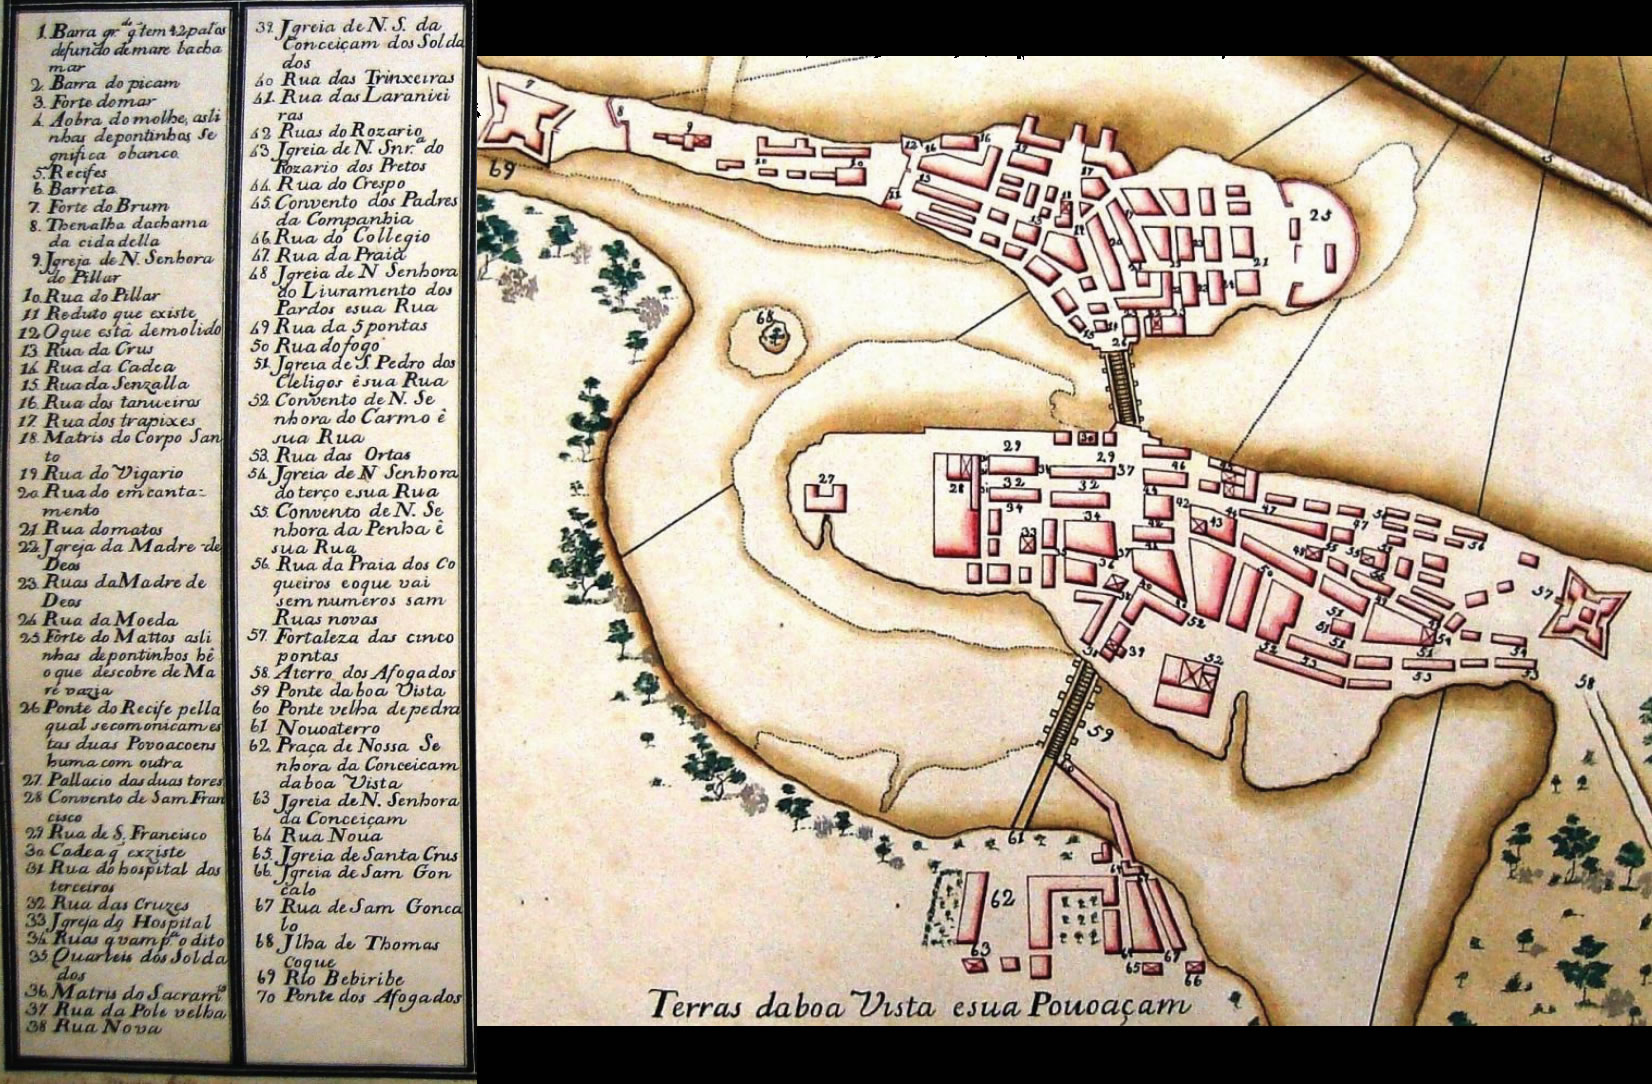 1. Barra gr.de q̃ tem 42 palos
defundo de mare bacha
mar
2. Barra do picam
3. Forte domar
4. Aobra do molhe, asli
nhas depontinhos Se
gnifica obanco
5. Recifes
6. Barreta
7. Forte do Brum
8. Thenalha dachama
da cidadella
9. Jgreja de N. Senhora
do Pillar
10. Rua do Pillar
11 Reduto que existe
12. Oque está demolido
13. Rua da Crus
14. Rua da Cadea
15. Rua da Senzalla
16. Rua dos tanueiros
17. Rua dos trapixes
18. Matris do Corpo San
to
19 Rua do Vigario
20. Rua do emcanta-
mento
21 Rua domatos
22. Jgreja da Madre de
Deos
23. Ruas da Madre de
Deos
24 Rua da Moeda
25 Forte do Mattos asli
nhas depontinhos hê
o que descobre de Ma
ré vazia
26 Ponte do Recife pella
qual secomonicam es
tas duas Povoacoens
huma com outra
27. Pallacio das duas tores
28 Convento de Sam Fran
cisco
29 Rua de S. Francisco
30 Cadea q̃ exziste
31 Rua do hospital dos
terceiros
32 Rua das Cruzes
33 Jgreja do Hospital
34 Ruas q vam p.a o dito
35 Quarteis dos Solda
dos
36 Matris do Sacram.to
37 Rua da Pole velha
38 Rua Nova
39. Jgreia de N. S. da
Conceiçam dos Solda
dos
40 Rua das Trinxeiras
41. Rua das Laranjei
ras
42 Ruas do Rozario
43 Jgreia de N. Snr.a do
Rozario dos Pretos
44 Rua do Crespo
45. Convento dos Padres
da Companhia
46 Rua do Collegio
47. Rua da Praia
48 Jgreia de N Senhora
do Liuramento dos
Pardos esua Rua
49 Rua da 5 pontas
50 Rua do fogo
51. Jgreia de S. Pedro dos
Cleligos êsua Rua
52. Convento de N. Se
nhora do Carmo ê
sua Rua
53. Rua das Ortas
54. Jgreia de N Senhora
do terço esua Rua
55. Convento de N. Se
nhora da Penha ê
sua Rua
56. Rua da Praia dos Co
queiros eoque vai
sem numeros sam
Ruas novas
57. Fortaleza das cinco
pontas
58. Aterro dos Afogados
59 Ponte da boa Vista
60 Ponte velha de pedra
61 Nouoaterro
62. Praça de Nossa Se
nhora da Conceicam
daboa Vista
63 Jgreia de N. Senhora
da Conceiçam
64 Rua Noua
65. Jgreia de Santa Crus
66. Jgreia de Sam Gon
calo
67 Rua de Sam Gonca
lo
68 Jlha de Thomas
Coque
69 Rio Bebiribe
70 Ponte dos Afogados
7
8
9
69
10
10
12
16
17
25
68
26
27
28
29
29
37
32
32
34
34
33
46
43
47
56
57
58
59
52
52
39
61
62
63
65
66
67
Terras daboa Vista esua Pouoaçam